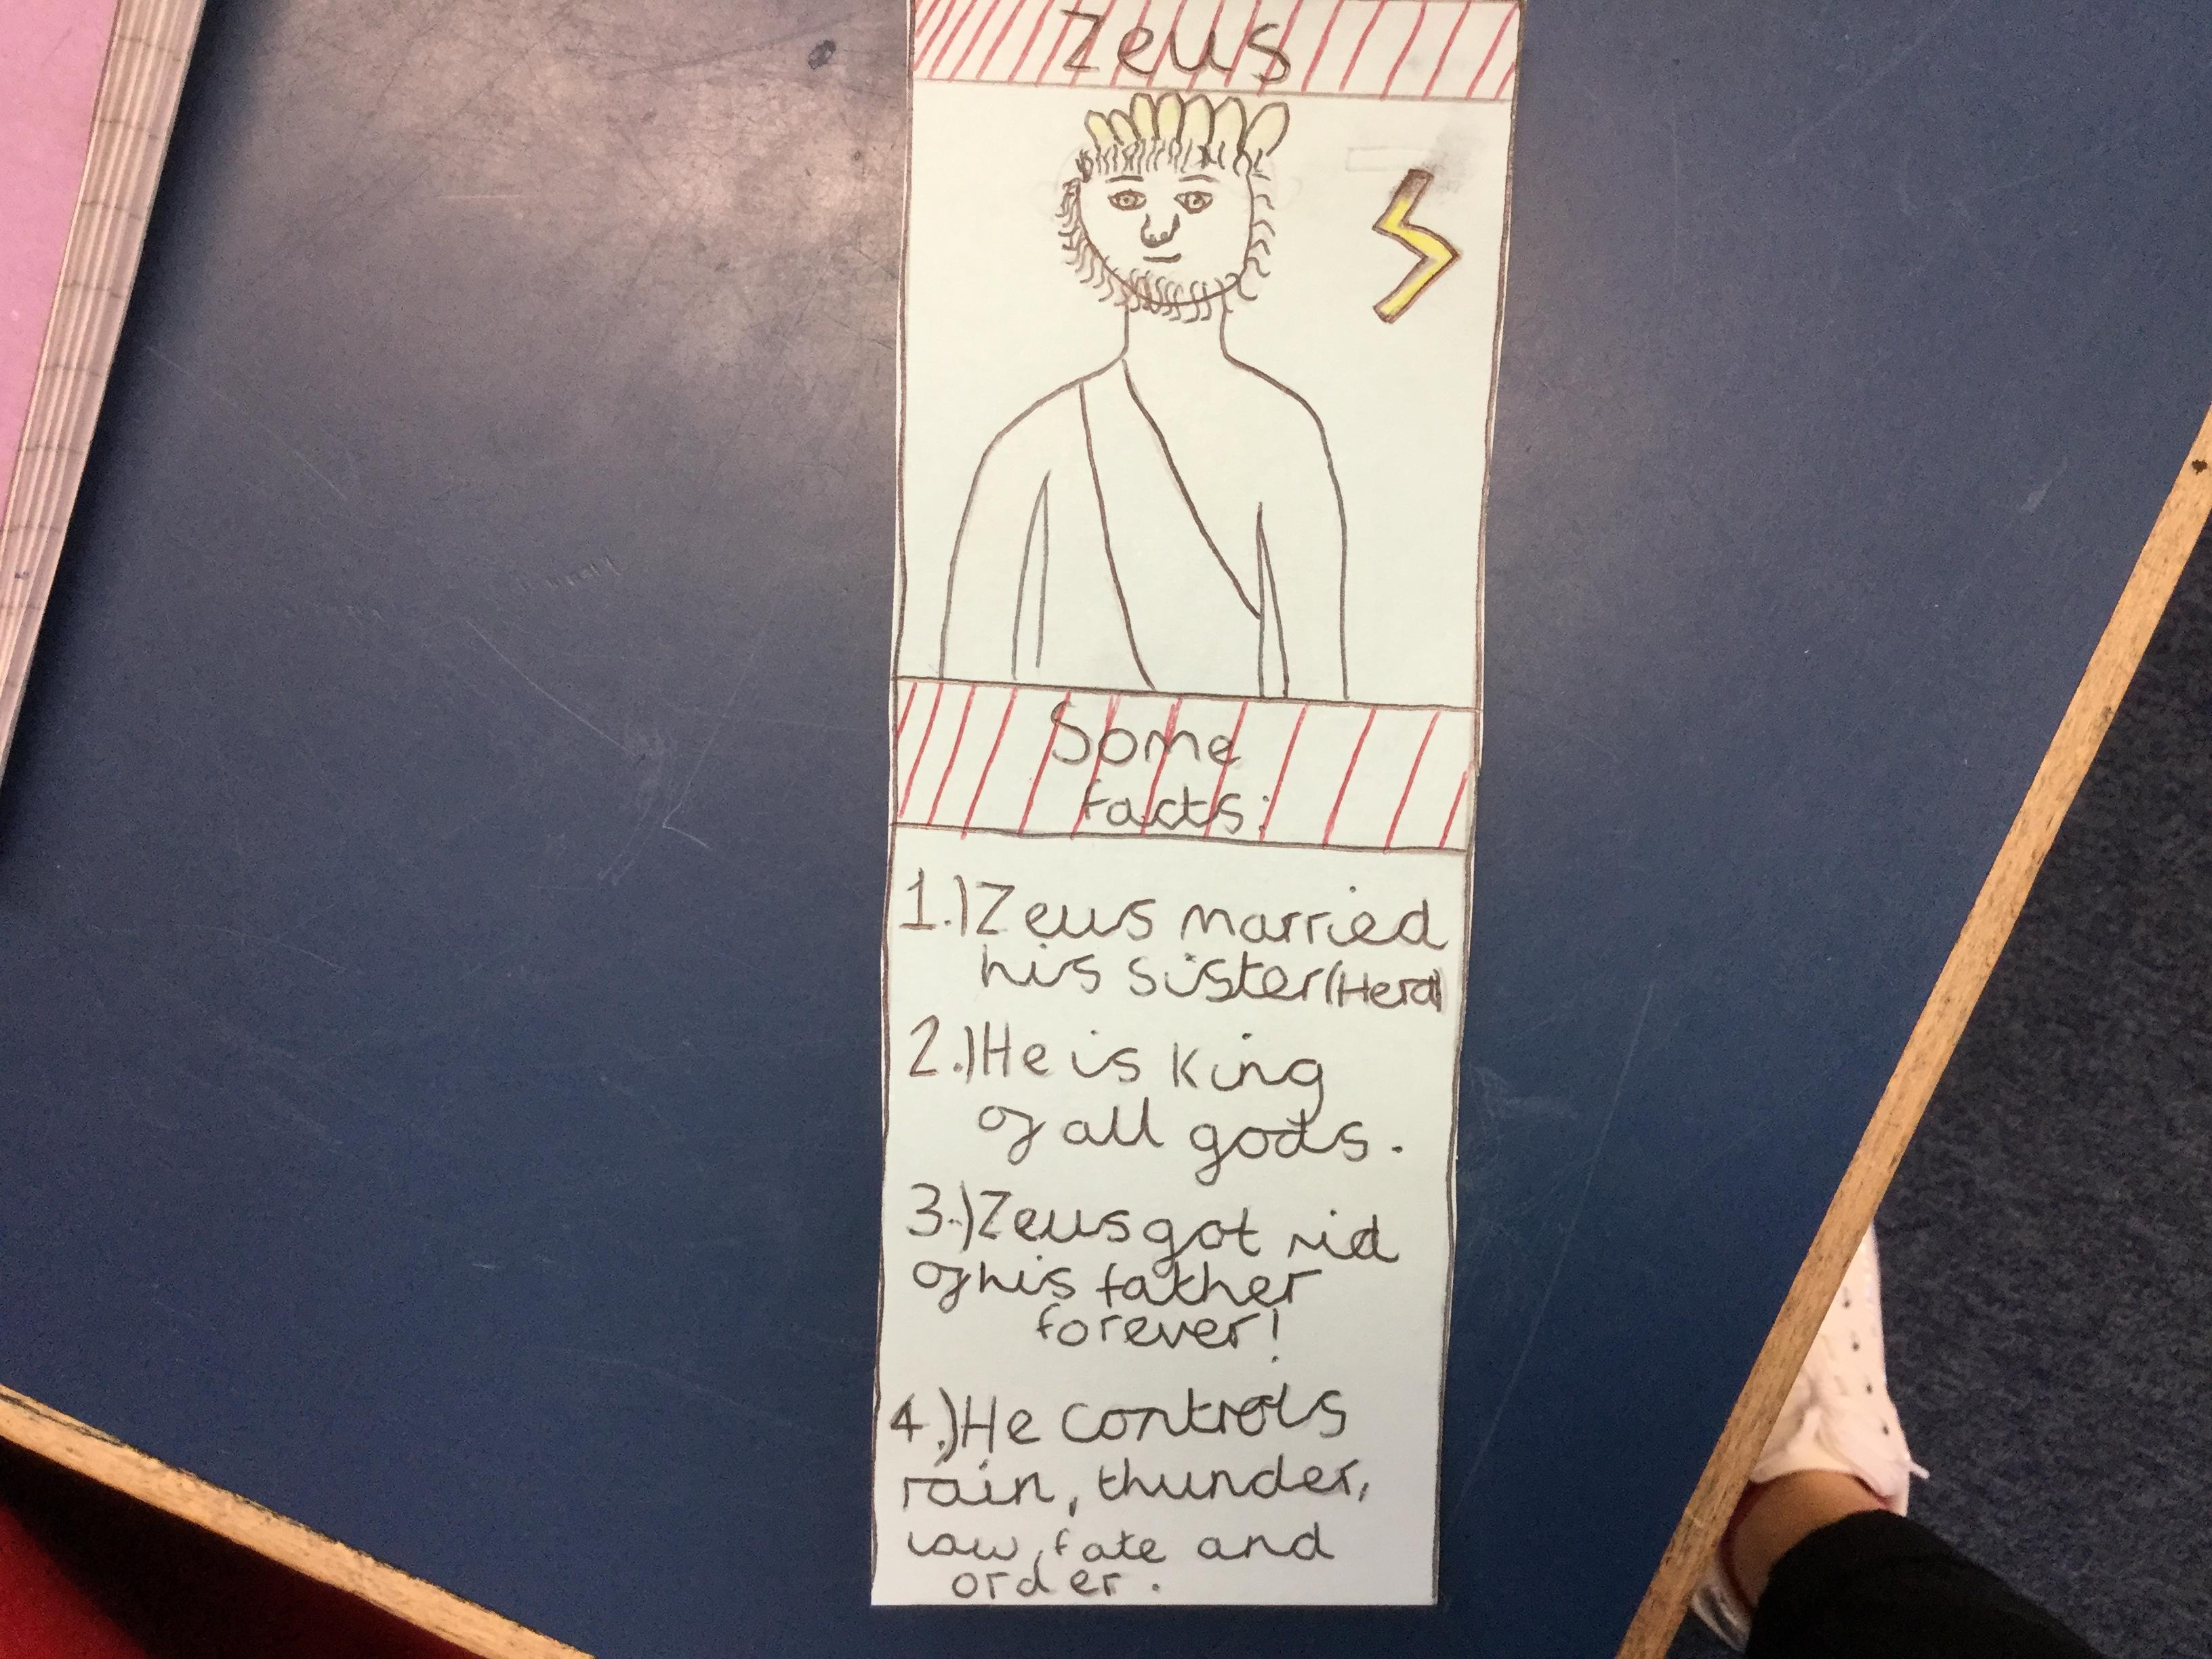 Zeus
Some
facts:
1.) Zeus married
his sister (Hera)
2.) He is King
of all gods.
3.) Zeus got rid
of his father
forever!
4.) He controls
rain, thunder,
law, fate and
order.